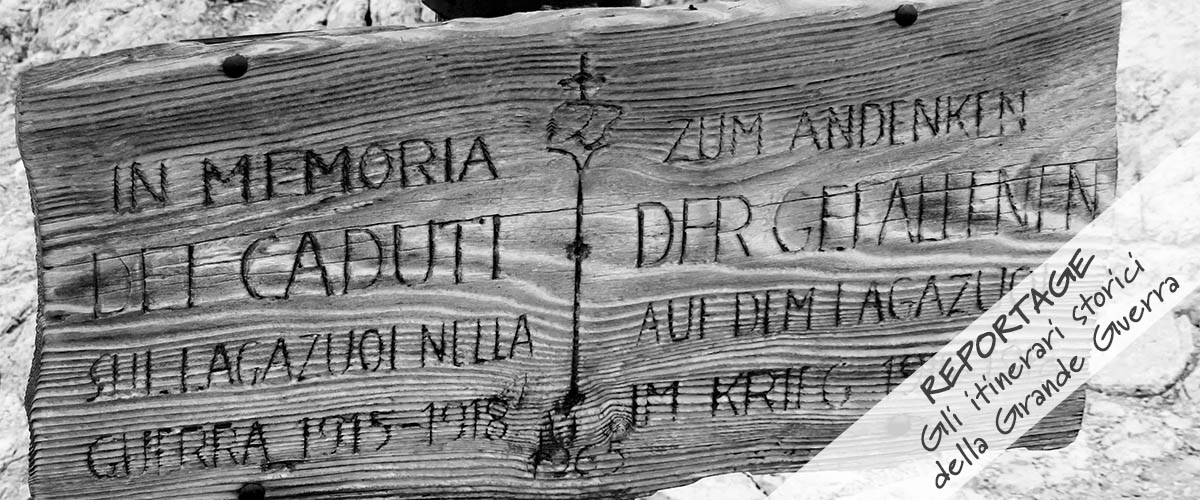 IN MEMORIA
DEI CADUTI
SUL LAGAZUOI NELLA
GUERRA 1915-1918
ZUM ANDENKEN
DER GEFALLENEN
AUF DEM LAGAZUOI
IM KRIEG
1965
REPORTAGE
Gli itinerari storici
della Grande Guerra